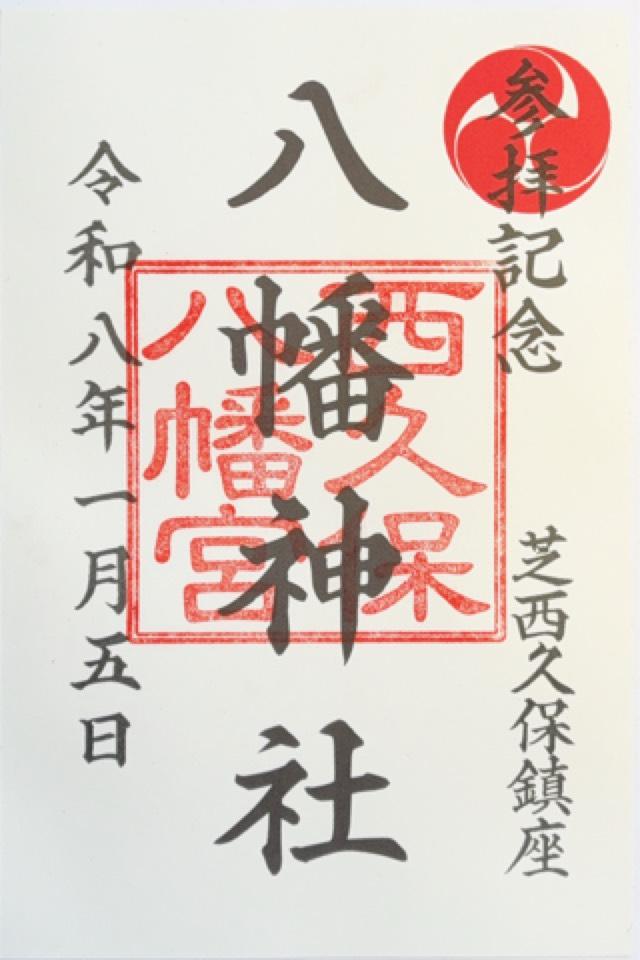 参拝記念
芝西久保鎮座
八幡神社
西久保
八幡宮
令和八年一月五日